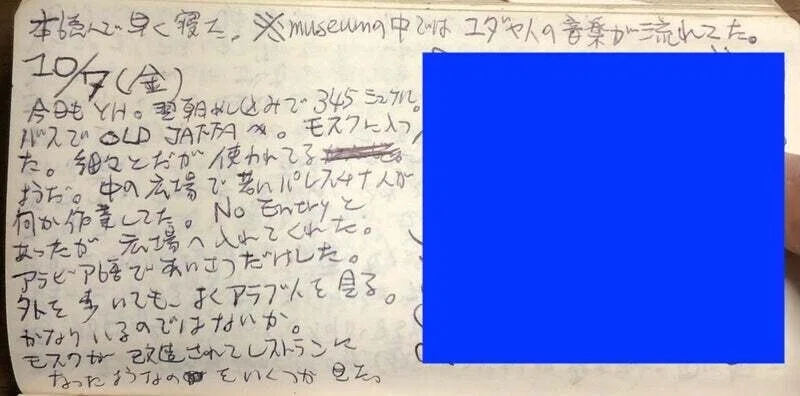 本読んで早く寝た。※museumの中ではユダヤ人の音楽が流れてた。
10/7(金)
今日もYH。翌朝めし込みで345シェケル。
バスでOLD JAFFAへ。モスクに入っ
た。細々とだが使われてる
ようだ。中の広場で若いパレスチナ人が
何か作業してた。No Entryと
あったが広場へ入れてくれた。
アラビア語であいさつだけした。
外を歩いても、よくアラブ人を見る。
かなりいるのではないか。
モスクが改造されてレストランに
なったようなのをいくつか見た。